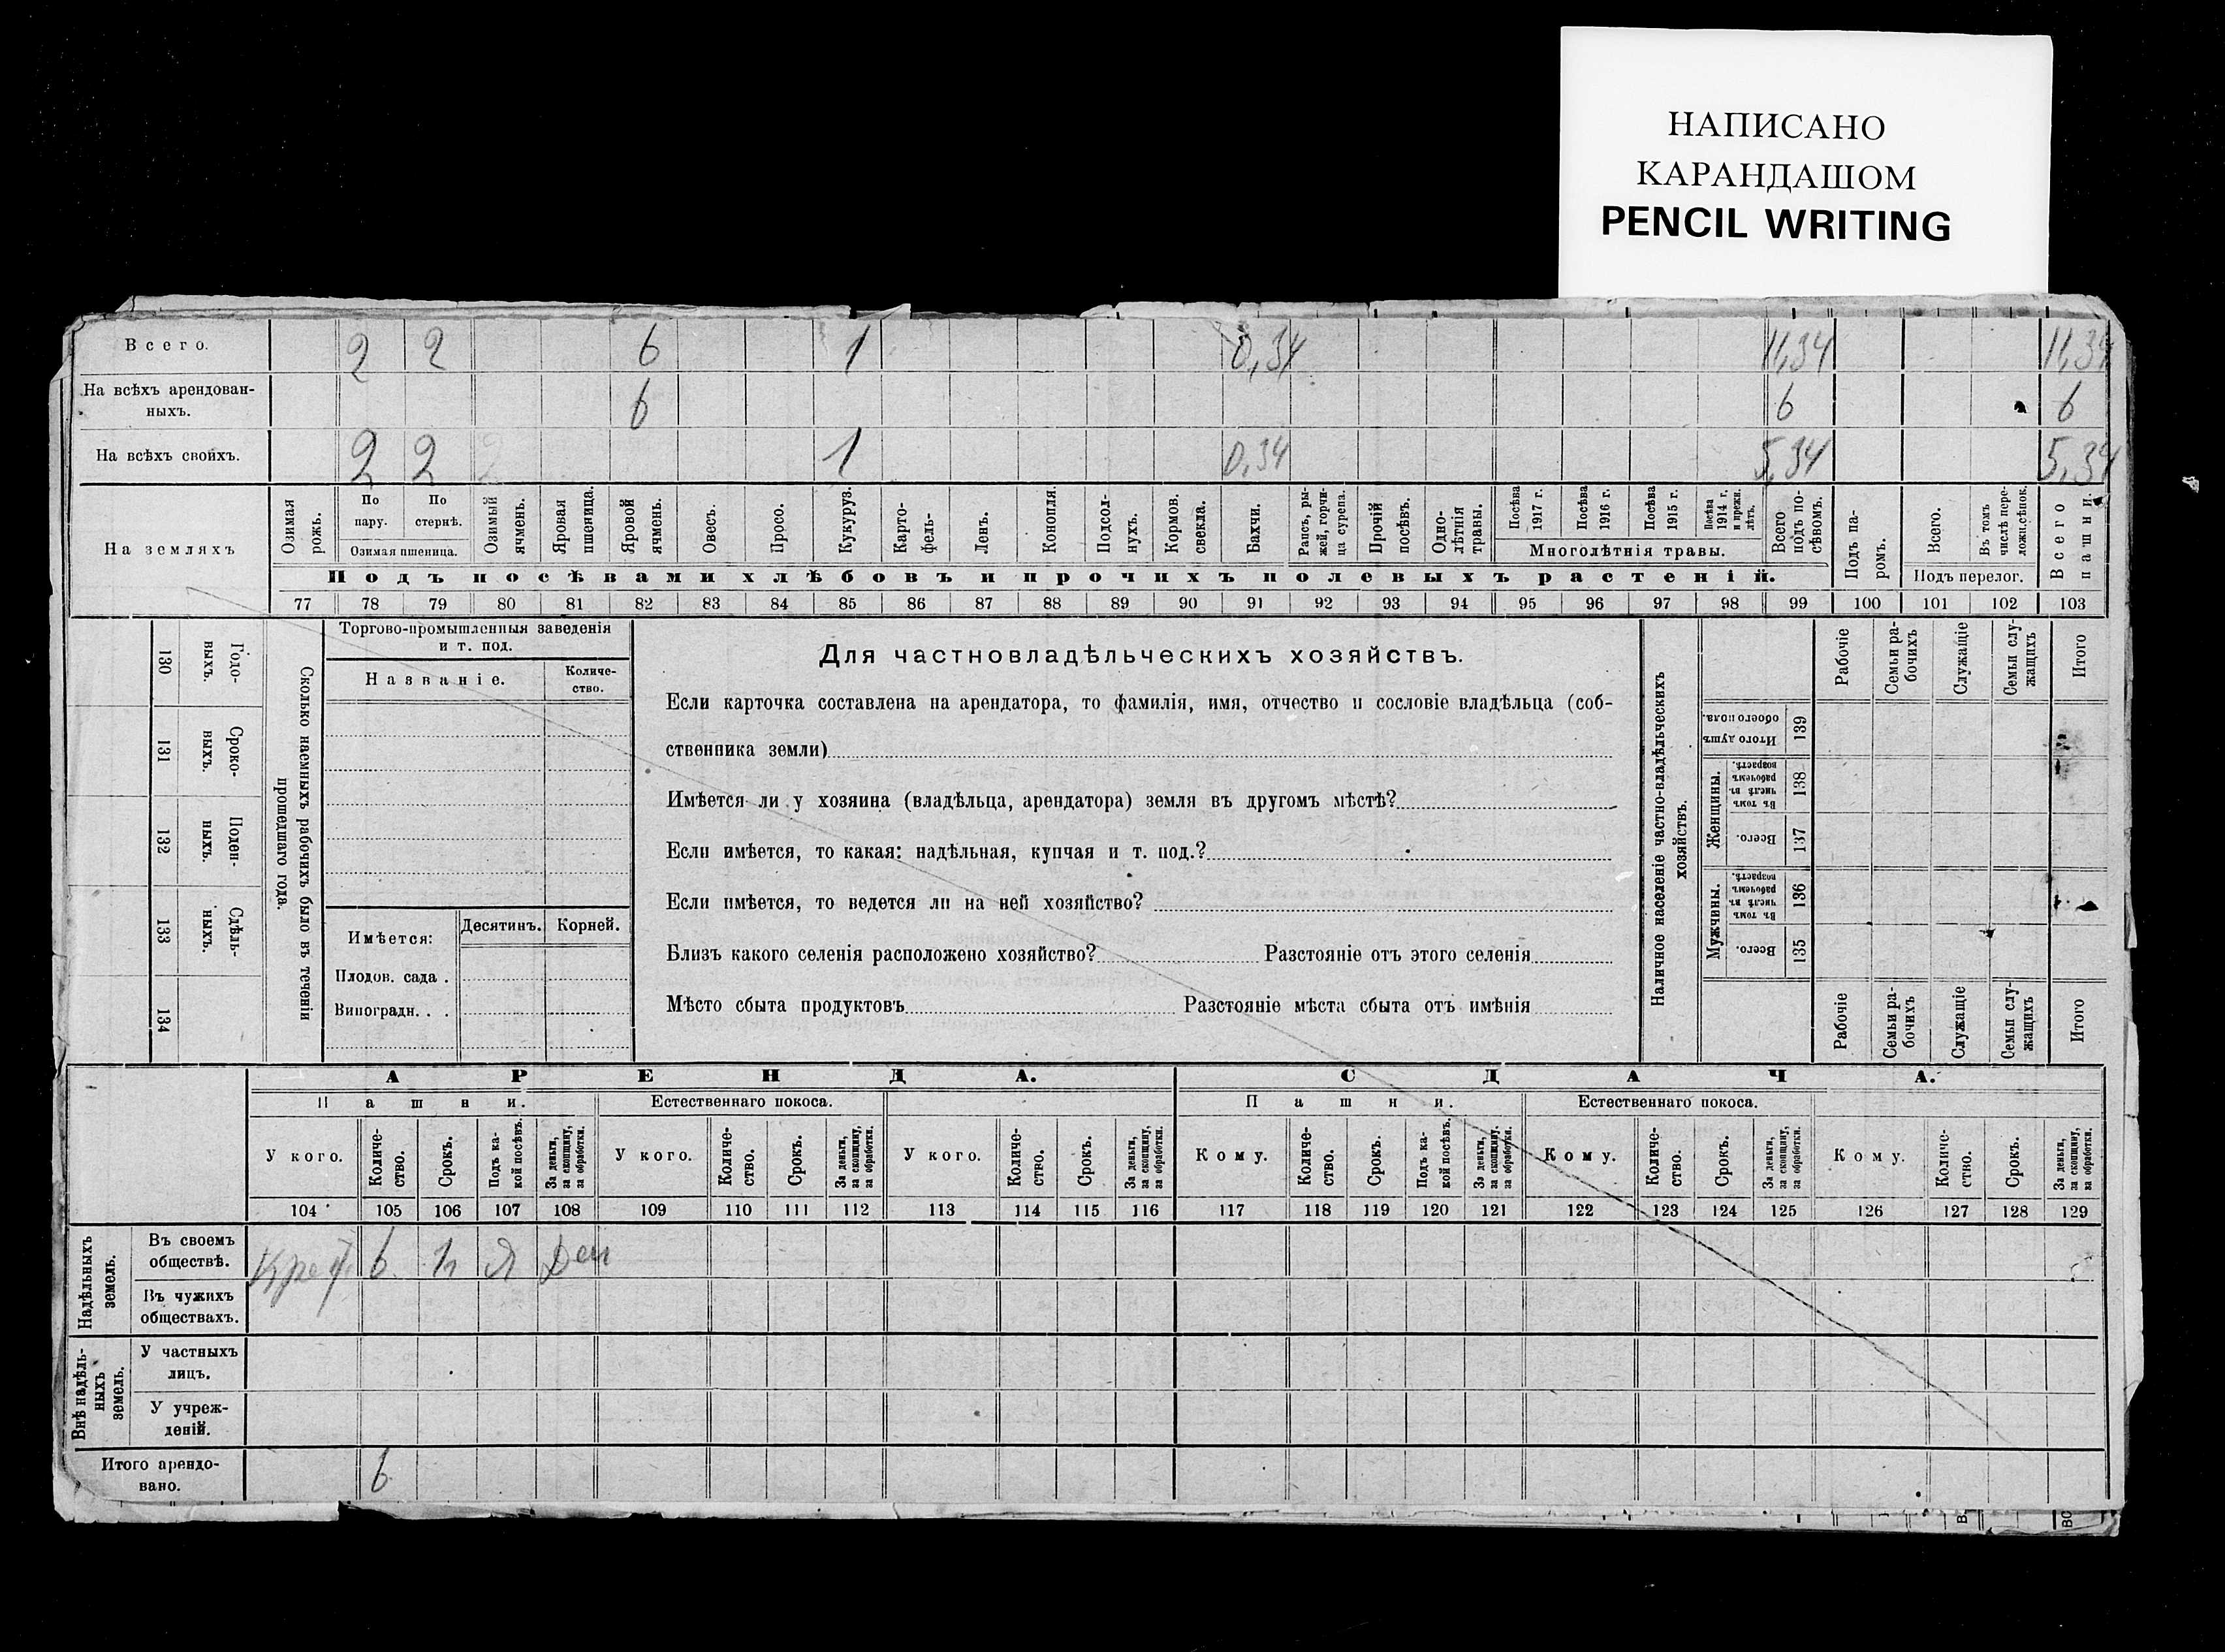 НАПИСАНО
КАРАНДАШОМ
PENCIL WRITING
Всего. 2 2 6 1 0,34 11,34 11,34
На всѣхъ арендован-
ныхъ. 6 6 6
На всѣхъ своихъ. 2 2 1 0,34 5,34 5,34
На земляхъ
Озимая рожь.
По пару.
По стернѣ.
Озимая пшеница.
Озимый ячмень.
Яровая пшеница.
Яровой ячмень.
Овесъ.
Просо.
Кукуруз.
Карто-
фель-
Ленъ.
Конопля.
Подсол-
нухъ.
Кормов.
свекла.
Бахчи.
Рапсъ, ры-
жей, горчи-
ца сурепа.
Прочій
посѣвъ.
Одно-
лѣтнія
травы.
Посѣва
1917 г.
Посѣва
1916 г.
Посѣва
1915 г.
Посѣва
1914 г.
и прежн.
лѣтъ.
Многолѣтнія травы.
Всего
подъ по-
сѣвомъ.
Подъ па-
ромъ.
Всего.
Въ томъ
числѣ пере-
лож.сѣнок.
Подъ перелог.
Всего
пашни.
Подъ посѣвами хлѣбовъ и прочихъ полевыхъ растеній.
77 78 79 80 81 82 83 84 85 86 87 88 89 90 91 92 93 94 95 96 97 98 99 100 101 102 103
130 Годо-
ныхъ.
131 Сроко-
ныхъ.
132 Поден-
ныхъ.
133 Сдѣль-
ныхъ.
134
Сколько наемныхъ рабочихъ было въ теченіи
прошедшаго года.
Торгово-промышленныя заведенія
и т. под.
Названіе.
Количе-
ство.
Имѣется:
Десятинъ.
Корней.
Плодов. сада .
Виноградн. . .
Для частновладѣльческихъ хозяйствъ.
Если карточка составлена на арендатора, то фамилія, имя, отчество и сословіе владѣльца (соб-
ственника земли)
Имѣется ли у хозяина (владѣльца, арендатора) земля въ другомъ мѣстѣ?
Если имѣется, то какая: надѣльная, купчая и т. под.?
Если имѣется, то ведется ли на ней хозяйство?
Близъ какого селенія расположено хозяйство? Разстояніе отъ этого селенія
Мѣсто сбыта продуктовъ Разстояніе мѣста сбыта отъ имѣнія
Наличное населеніе частно-владѣльческихъ
хозяйствъ.
Рабочіе
Семьи ра-
бочихъ
Служащіе
Семьи слу-
жащихъ
Итого
Итого душъ
обоего пола.
139
Женщины.
Въ томъ
числѣ въ
рабочемъ
возрастѣ.
138
Всего.
137
Мужчины.
Въ томъ
числѣ въ
рабочемъ
возрастѣ.
136
Всего.
135
Рабочіе
Семьи ра-
бочихъ
Служащіе
Семьи слу-
жащихъ
Итого
АРЕНДА.
СДАЧА.
Пашни.
Естественнаго покоса.
Пашни.
Естественнаго покоса.
У кого.
Количе-
ство.
Срокъ.
Подъ ка-
кой посѣвъ.
За деньги,
за скопщину,
за обработки.
У кого.
Количе-
ство.
Срокъ.
За деньги,
за скопщину,
за обработки.
У кого.
Количе-
ство.
Срокъ.
За деньги,
за скопщину,
за обработки.
Кому.
Количе-
ство.
Срокъ.
Подъ ка-
кой посѣвъ.
За деньги,
за скопщину,
за обработки.
Кому.
Количе-
ство.
Срокъ.
За деньги,
за скопщину,
за обработки.
Кому.
Количе-
ство.
Срокъ.
За деньги,
за скопщину,
за обработки.
104 105 106 107 108 109 110 111 112 113 114 115 116 117 118 119 120 121 122 123 124 125 126 127 128 129
Надѣльныхъ
земель.
Въ своемъ
обществѣ. 6 Ден
Въ чужихъ
обществахъ.
Внѣ надѣль-
ныхъ
земель.
У частныхъ
лицъ.
У учреж-
деній.
Итого арендо-
вано. 6